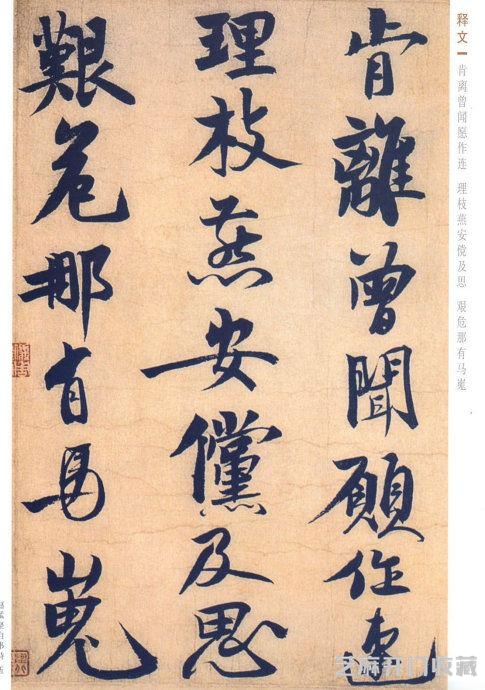 释文
肯离曾闻愿作连 理枝燕安傥及思 艰危那有马嵬
肯離曾聞願作連
理枝燕安儻及思
艱危那有馬嵬
芝麻开门收藏